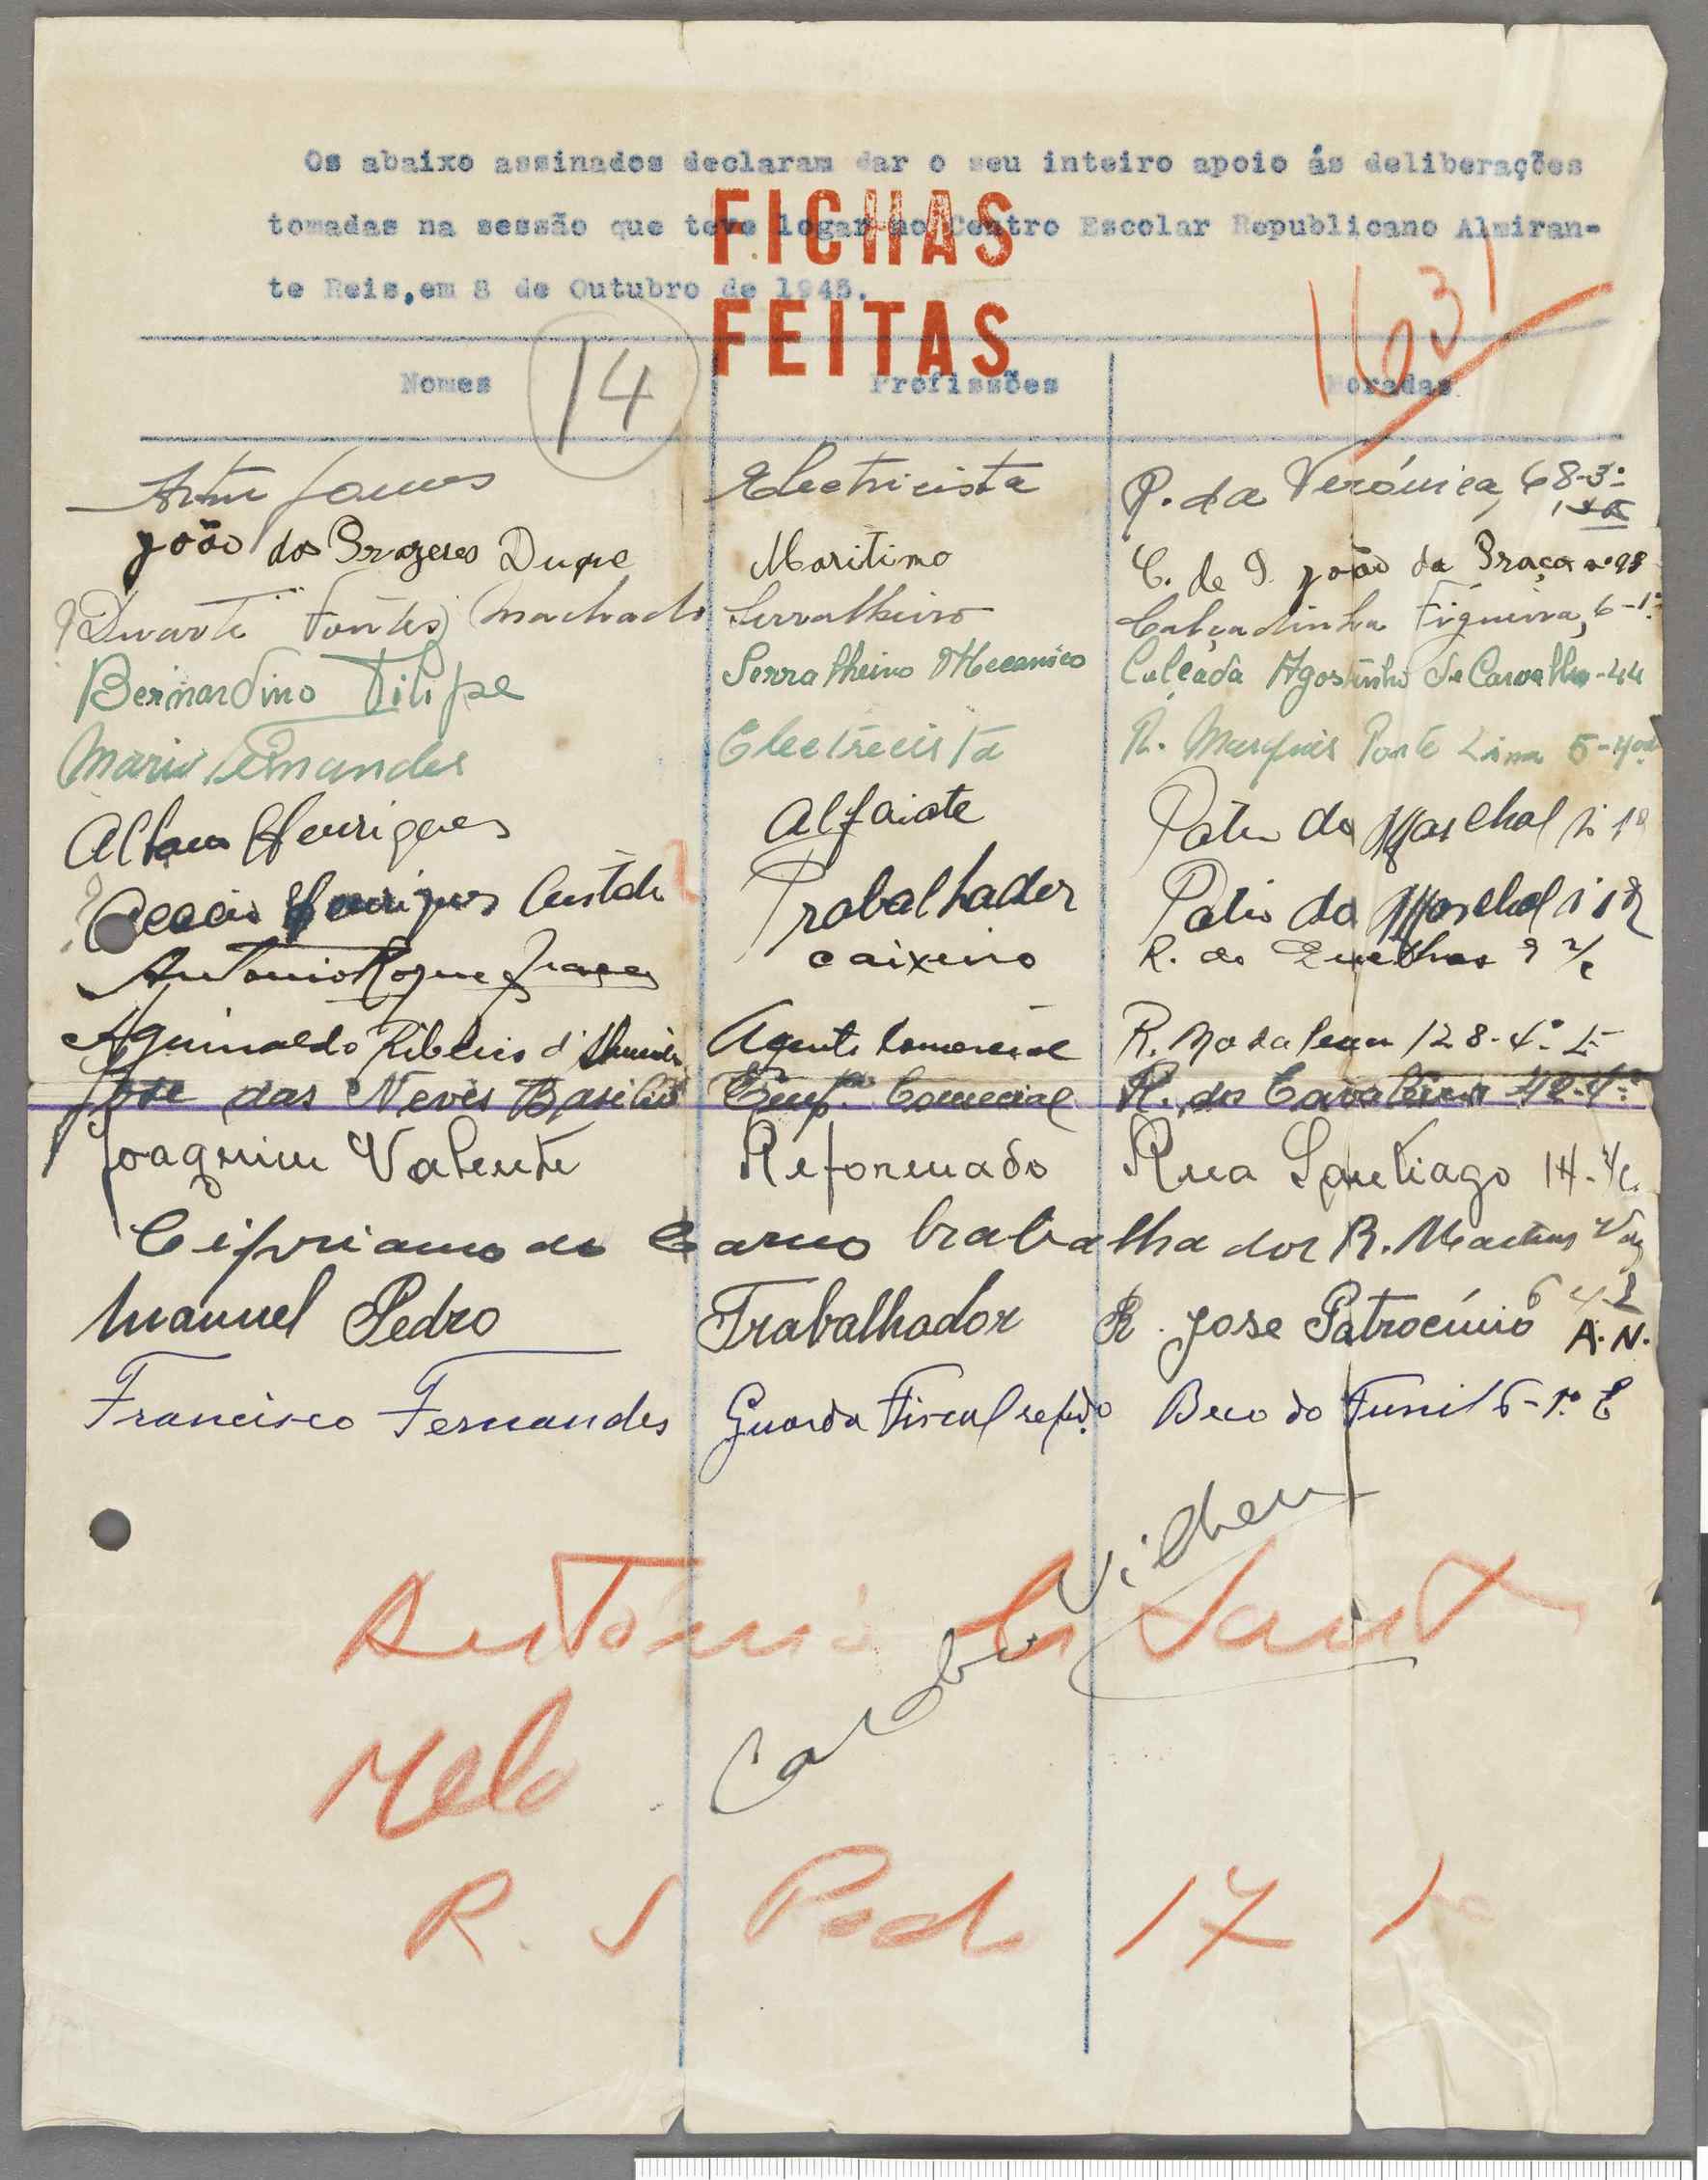 Os abaixo assinados declaram dar o seu inteiro apoio ás deliberações
tomadas na sessão que teve logar no Centro Escolar Republicano Almiran-
te Reis, em 8 de Outubro de 1945.
FICHAS
FEITAS
1631
14
Nomes Profissões Moradas
Artur Electricista R. da Verónica, 68-3º
João dos Prazeres Duque Maritimo C. de S. João da Praça nº 98
Duarte Fontes Machado Serralheiro Calçadinha Figueira, 6-1º
Bernardino Filipe Serralheiro Mecanico Calçada Agostinho de Carvalho-44
Mario Fernandes Electrecista R. Marquis Ponte Lima 5-4º
Henriques Alfaiate Patio do
Henriques Trabalhador Patio do
Antonio Roque caixeiro R. das
Aguinaldo Ribeiro d'Almeida Agente Comercial R. Madalena 128-4º
Jose das Neves Basilio Emp. Comercial R. dos Cavaleiros 42-4º
Joaquim Valente Reformado Rua Santiago 14-
Cipriano do Carmo trabalhador R. Martins Vaz
6
Manuel Pedro Trabalhador R. Jose Patrocínio A. N.
Francisco Fernandes Guarda Fiscal refdo Beco do Funil 6-1º E
Vilhena
António
Melo
R. S Ped 17 1